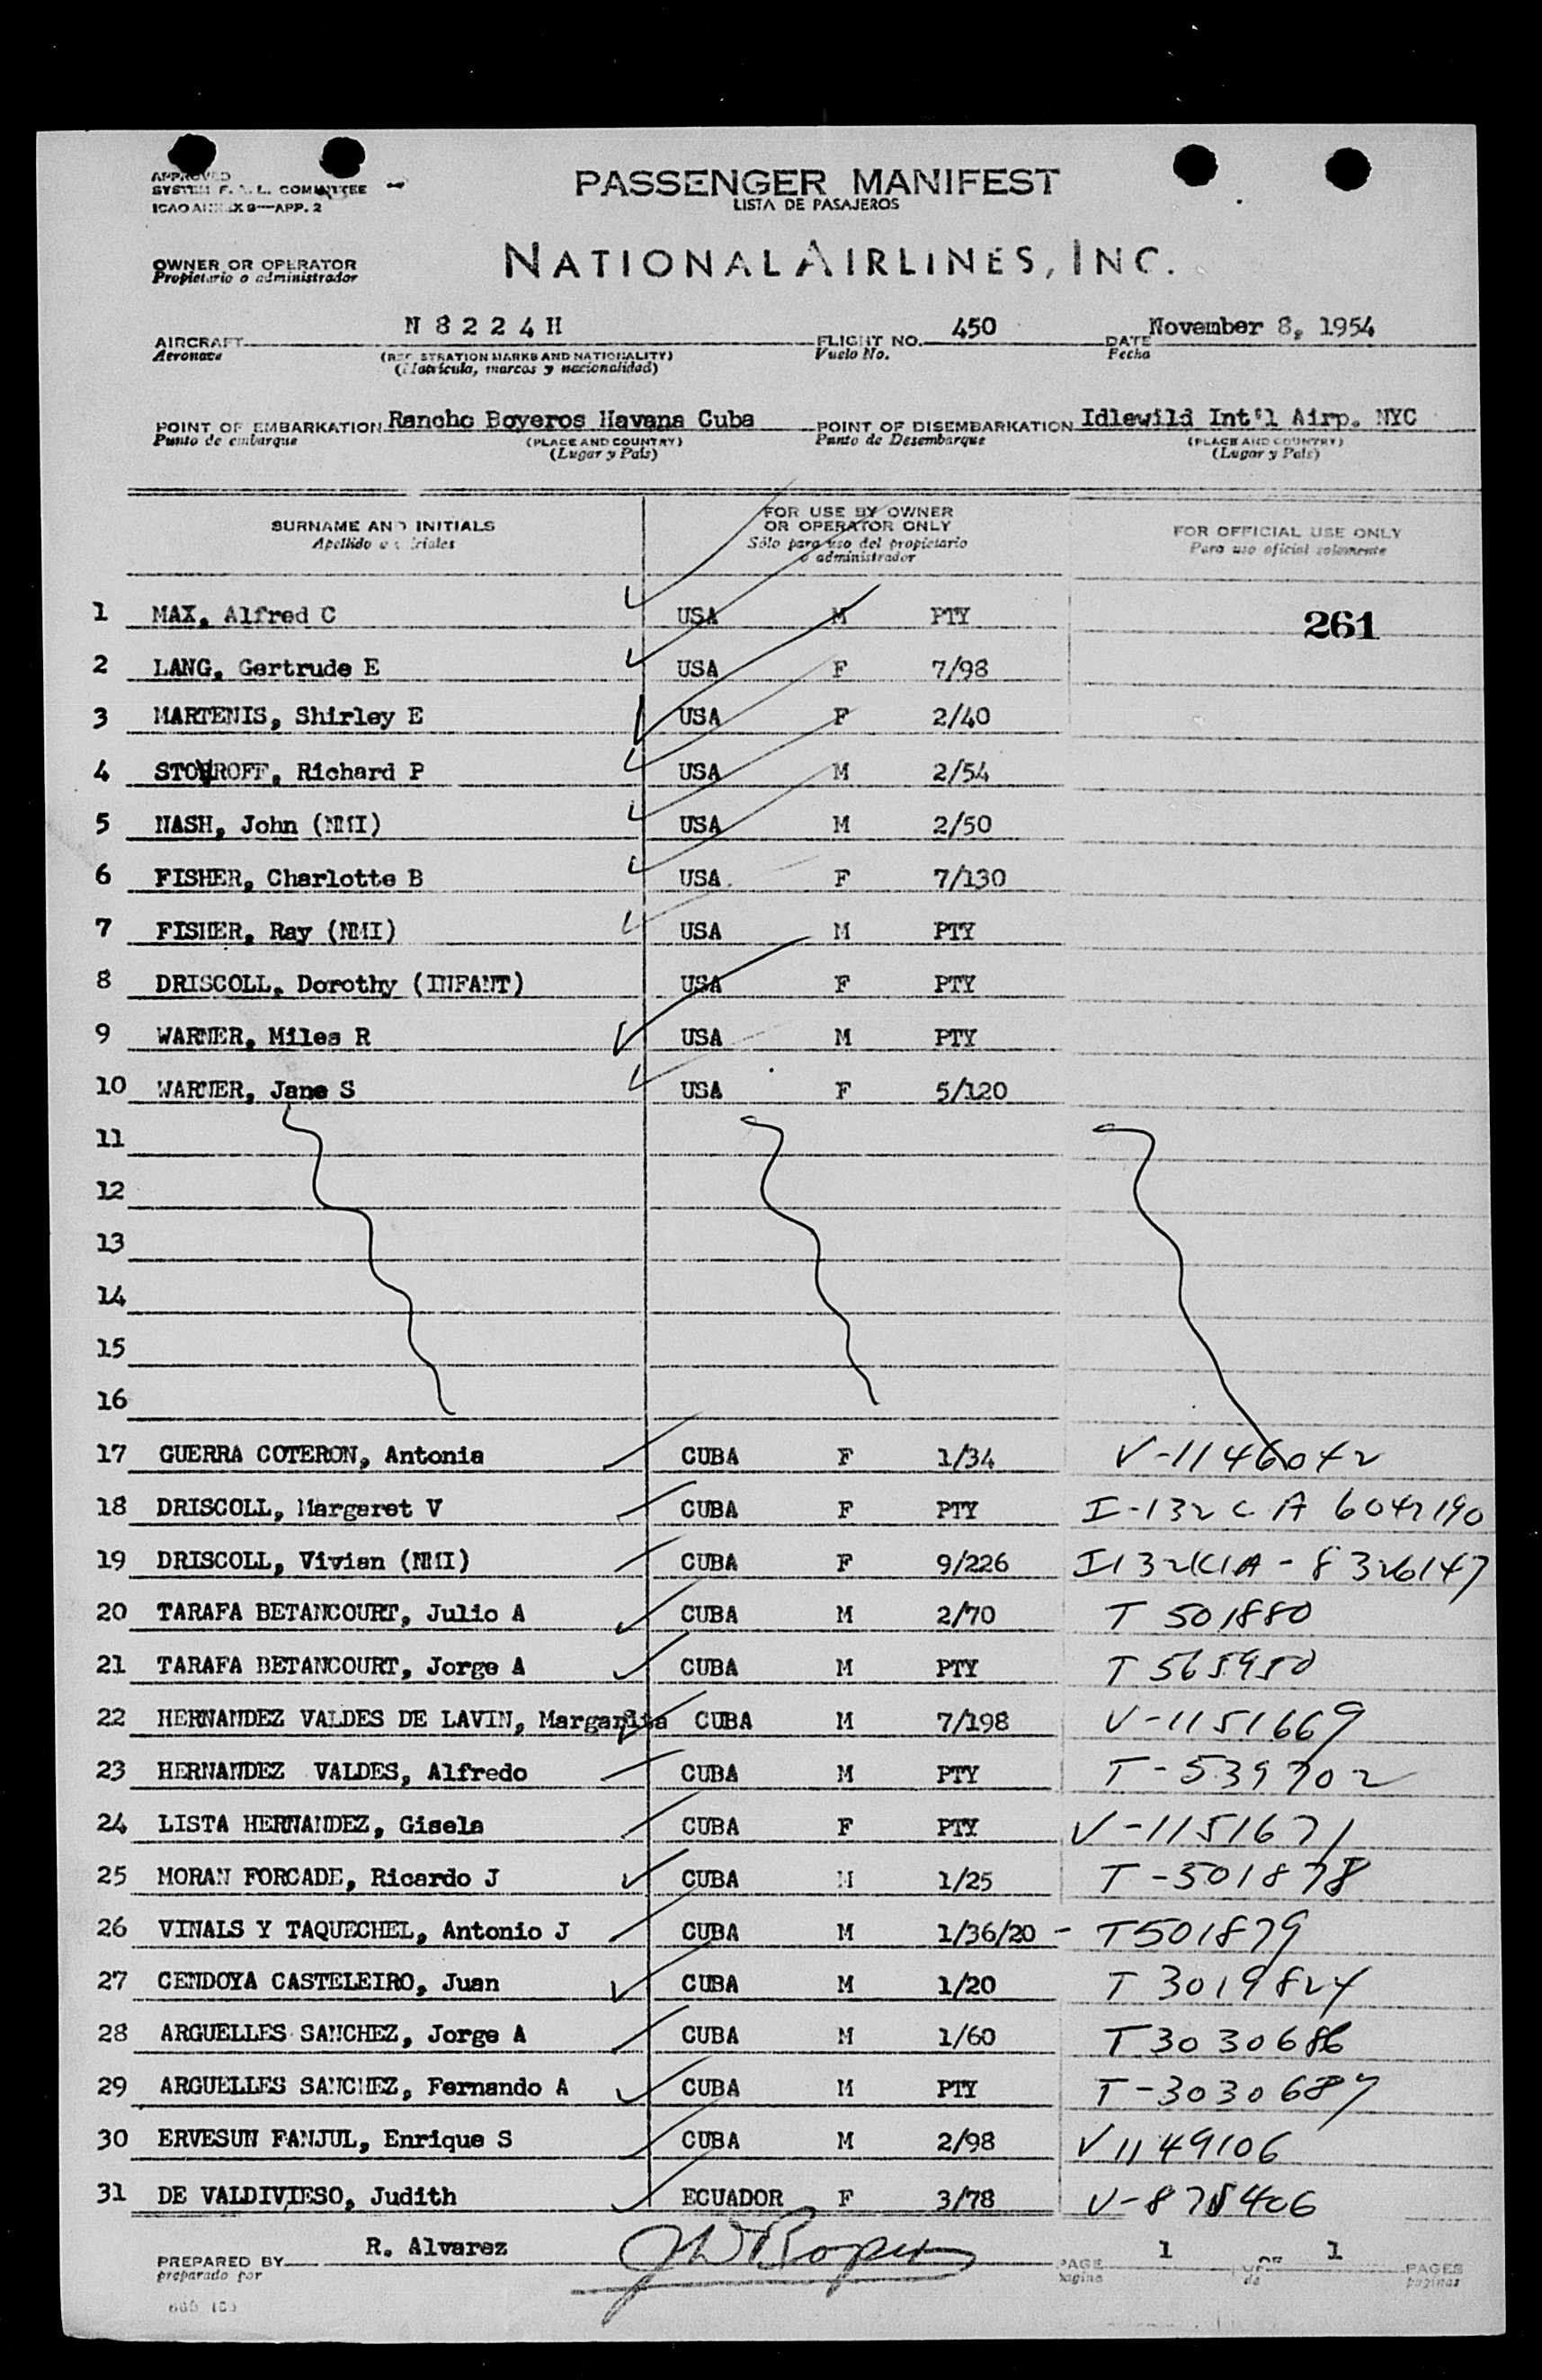 APPROVED
SYSTEM F. A. L. COMMITTEE
ICAO ANNEX 9—APP. 2
PASSENGER MANIFEST
LISTA DE PASAJEROS
OWNER OR OPERATOR
Propietario o administrador
NATIONAL AIRLINES, INC.
AIRCRAFT N 8 2 2 4 H FLIGHT NO. 450 DATE November 8, 1954
Aeronave (REGISTRATION MARKS AND NATIONALITY) Vuelo No. Fecha
(Matrícula, marcas y nacionalidad)
POINT OF EMBARKATION Rancho Boyeros Havana Cuba POINT OF DISEMBARKATION Idlewild Int'l Airp. NYC
Punto de embarque (PLACE AND COUNTRY) Punto de Desembarque (PLACE AND COUNTRY)
(Lugar y País) (Lugar y País)
SURNAME AND INITIALS
Apellido e iniciales
FOR USE BY OWNER
OR OPERATOR ONLY
Sólo para uso del propietario
o administrador
FOR OFFICIAL USE ONLY
Para uso oficial solamente
1 MAX, Alfred C USA M PTY 261
2 LANG, Gertrude E USA F 7/98
3 MARTENIS, Shirley E USA F 2/40
4 STOVROFF, Richard P USA M 2/54
5 NASH, John (NMI) USA M 2/50
6 FISHER, Charlotte B USA F 7/130
7 FISHER, Ray (NMI) USA M PTY
8 DRISCOLL, Dorothy (INFANT) USA F PTY
9 WARNER, Miles R USA M PTY
10 WARNER, Jane S USA F 5/120
11
12
13
14
15
16
17 GUERRA COTERON, Antonia CUBA F 1/34 V-1146042
18 DRISCOLL, Margaret V CUBA F PTY I-132 C A 6042190
19 DRISCOLL, Vivian (NMI) CUBA F 9/226 I132(C)A-8326147
20 TARAFA BETANCOURT, Julio A CUBA M 2/70 T 501880
21 TARAFA BETANCOURT, Jorge A CUBA M PTY T 565950
22 HERNANDEZ VALDES DE LAVIN, Margarita CUBA M 7/198 V-1151669
23 HERNANDEZ VALDES, Alfredo CUBA M PTY T-539702
24 LISTA HERNANDEZ, Gisela CUBA F PTY V-1151671
25 MORAN FORCADE, Ricardo J CUBA M 1/25 T-501878
26 VINALS Y TAQUECHEL, Antonio J CUBA M 1/36/20 - T501879
27 CENDOYA CASTELEIRO, Juan CUBA M 1/20 T 3019824
28 ARGUELLES SANCHEZ, Jorge A CUBA M 1/60 T3030686
29 ARGUELLES SANCHEZ, Fernando A CUBA M PTY T-3030687
30 ERVESUN FANJUL, Enrique S CUBA M 2/98 V1149106
31 DE VALDIVIESO, Judith ECUADOR F 3/78 V-875406
PREPARED BY R. Alvarez PAGE 1 OF 1 PAGES
preparado por página de páginas